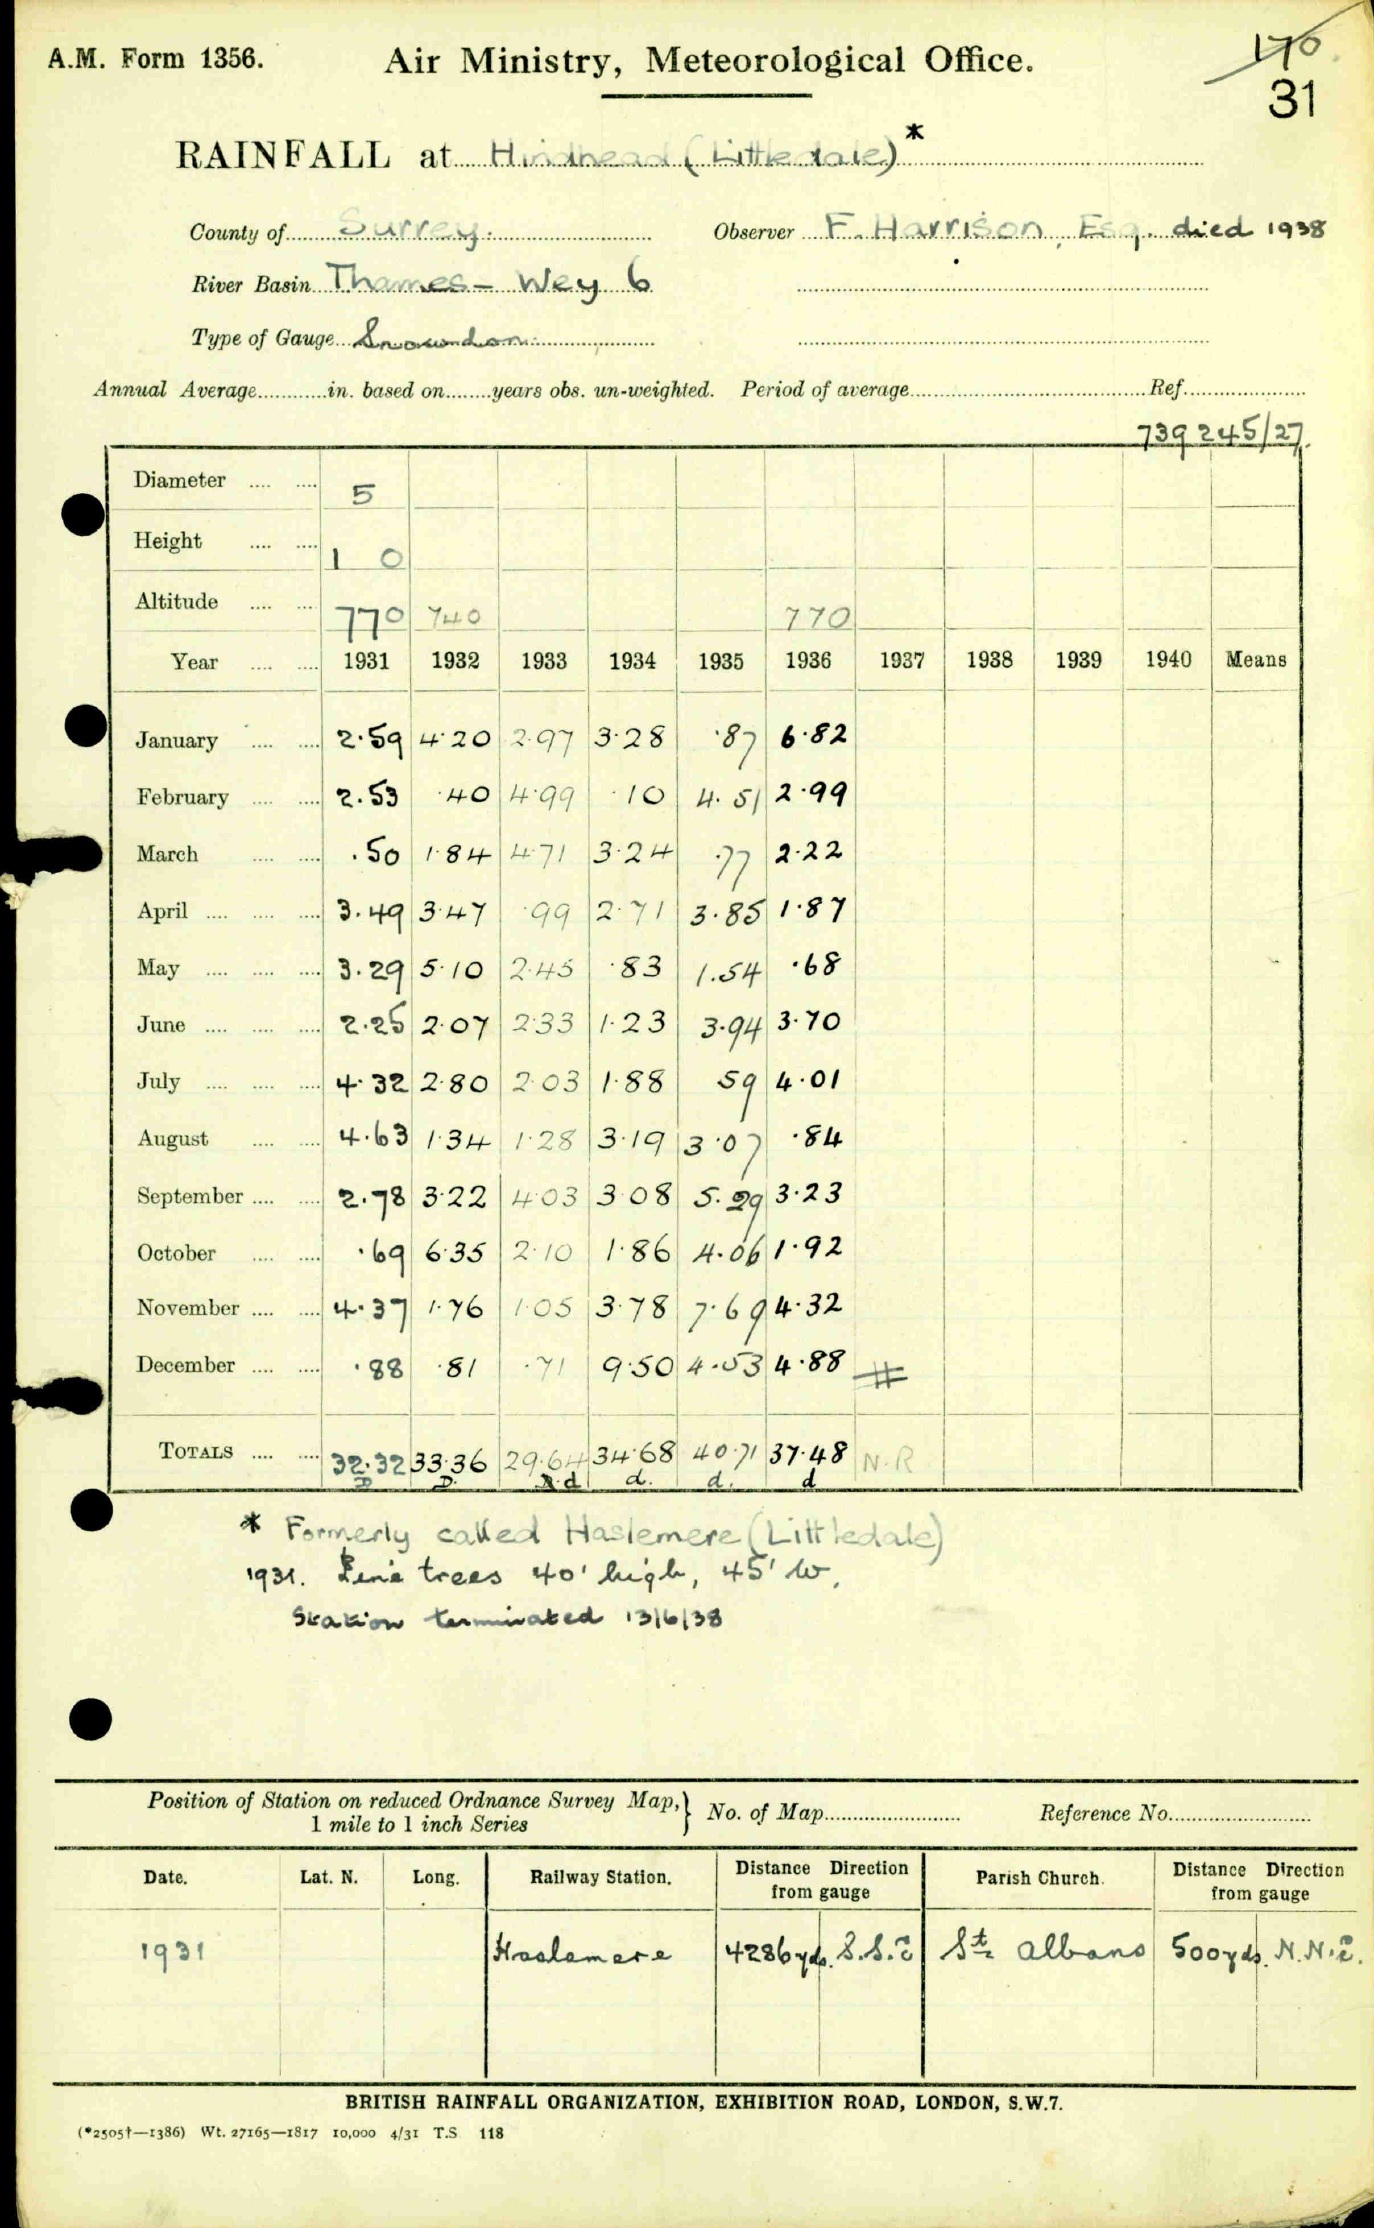 A.M. Form 1356. Air Ministry, Meteorological Office. 170
31
RAINFALL at Hindhead (Littledale)*
County of Surrey. Observer F. Harrison, Esq. died 1938
River Basin Thames – Wey 6
Type of Gauge Snowdon
Annual Average............in. based on........years obs. un-weighted. Period of average.......... Ref..........
739 245/27.
Diameter .... .... 5
Height .... .... 1 0
Altitude .... .... 770 740 770
Year .... .... 1931 1932 1933 1934 1935 1936 1937 1938 1939 1940 Means
January .... .... 2·59 4·20 2·97 3·28 ·87 6·82
February .... .... 2·53 ·40 4·99 ·10 4·51 2·99
March .... .... ·50 1·84 4·71 3·24 ·77 2·22
April .... .... .... 3·49 3·47 ·99 2·71 3·85 1·87
May .... .... .... 3·29 5·10 2·45 ·83 1·54 ·68
June .... .... .... 2·25 2·07 2·33 1·23 3·94 3·70
July .... .... .... 4·32 2·80 2·03 1·88 59 4·01
August .... .... 4·63 1·34 1·28 3·19 3·07 ·84
September .... .... 2·78 3·22 4·03 3·08 5·29 3·23
October .... .... ·69 6·35 2·10 1·86 4·06 1·92
November .... .... 4·37 1·76 1·05 3·78 7·69 4·32
December .... .... ·88 ·81 ·71 9·50 4·53 4·88
TOTALS .... .... 32·32 33·36 29·64 34·68 40·71 37·48 N.R
D D. d d. d. d
* Formerly called Haslemere (Littledale)
1931. Pine trees 40' high, 45' W.
Station terminated 13/6/38
Position of Station on reduced Ordnance Survey Map, 1 mile to 1 inch Series } No. of Map.......... Reference No..........
Date. Lat. N. Long. Railway Station. Distance Direction from gauge Parish Church. Distance Direction from gauge
1931 Haslemere 4286 yds. S.S.E St. Albans 500 yds. N.N.E.
BRITISH RAINFALL ORGANIZATION, EXHIBITION ROAD, LONDON, S.W.7.
(*2505†—1386) Wt. 27165—1817 10,000 4/31 T.S 118